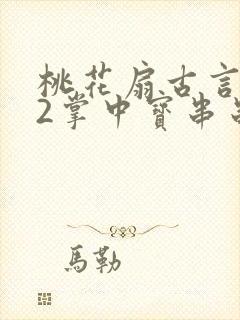 桃花扇古言
2掌中寳串
馬勒